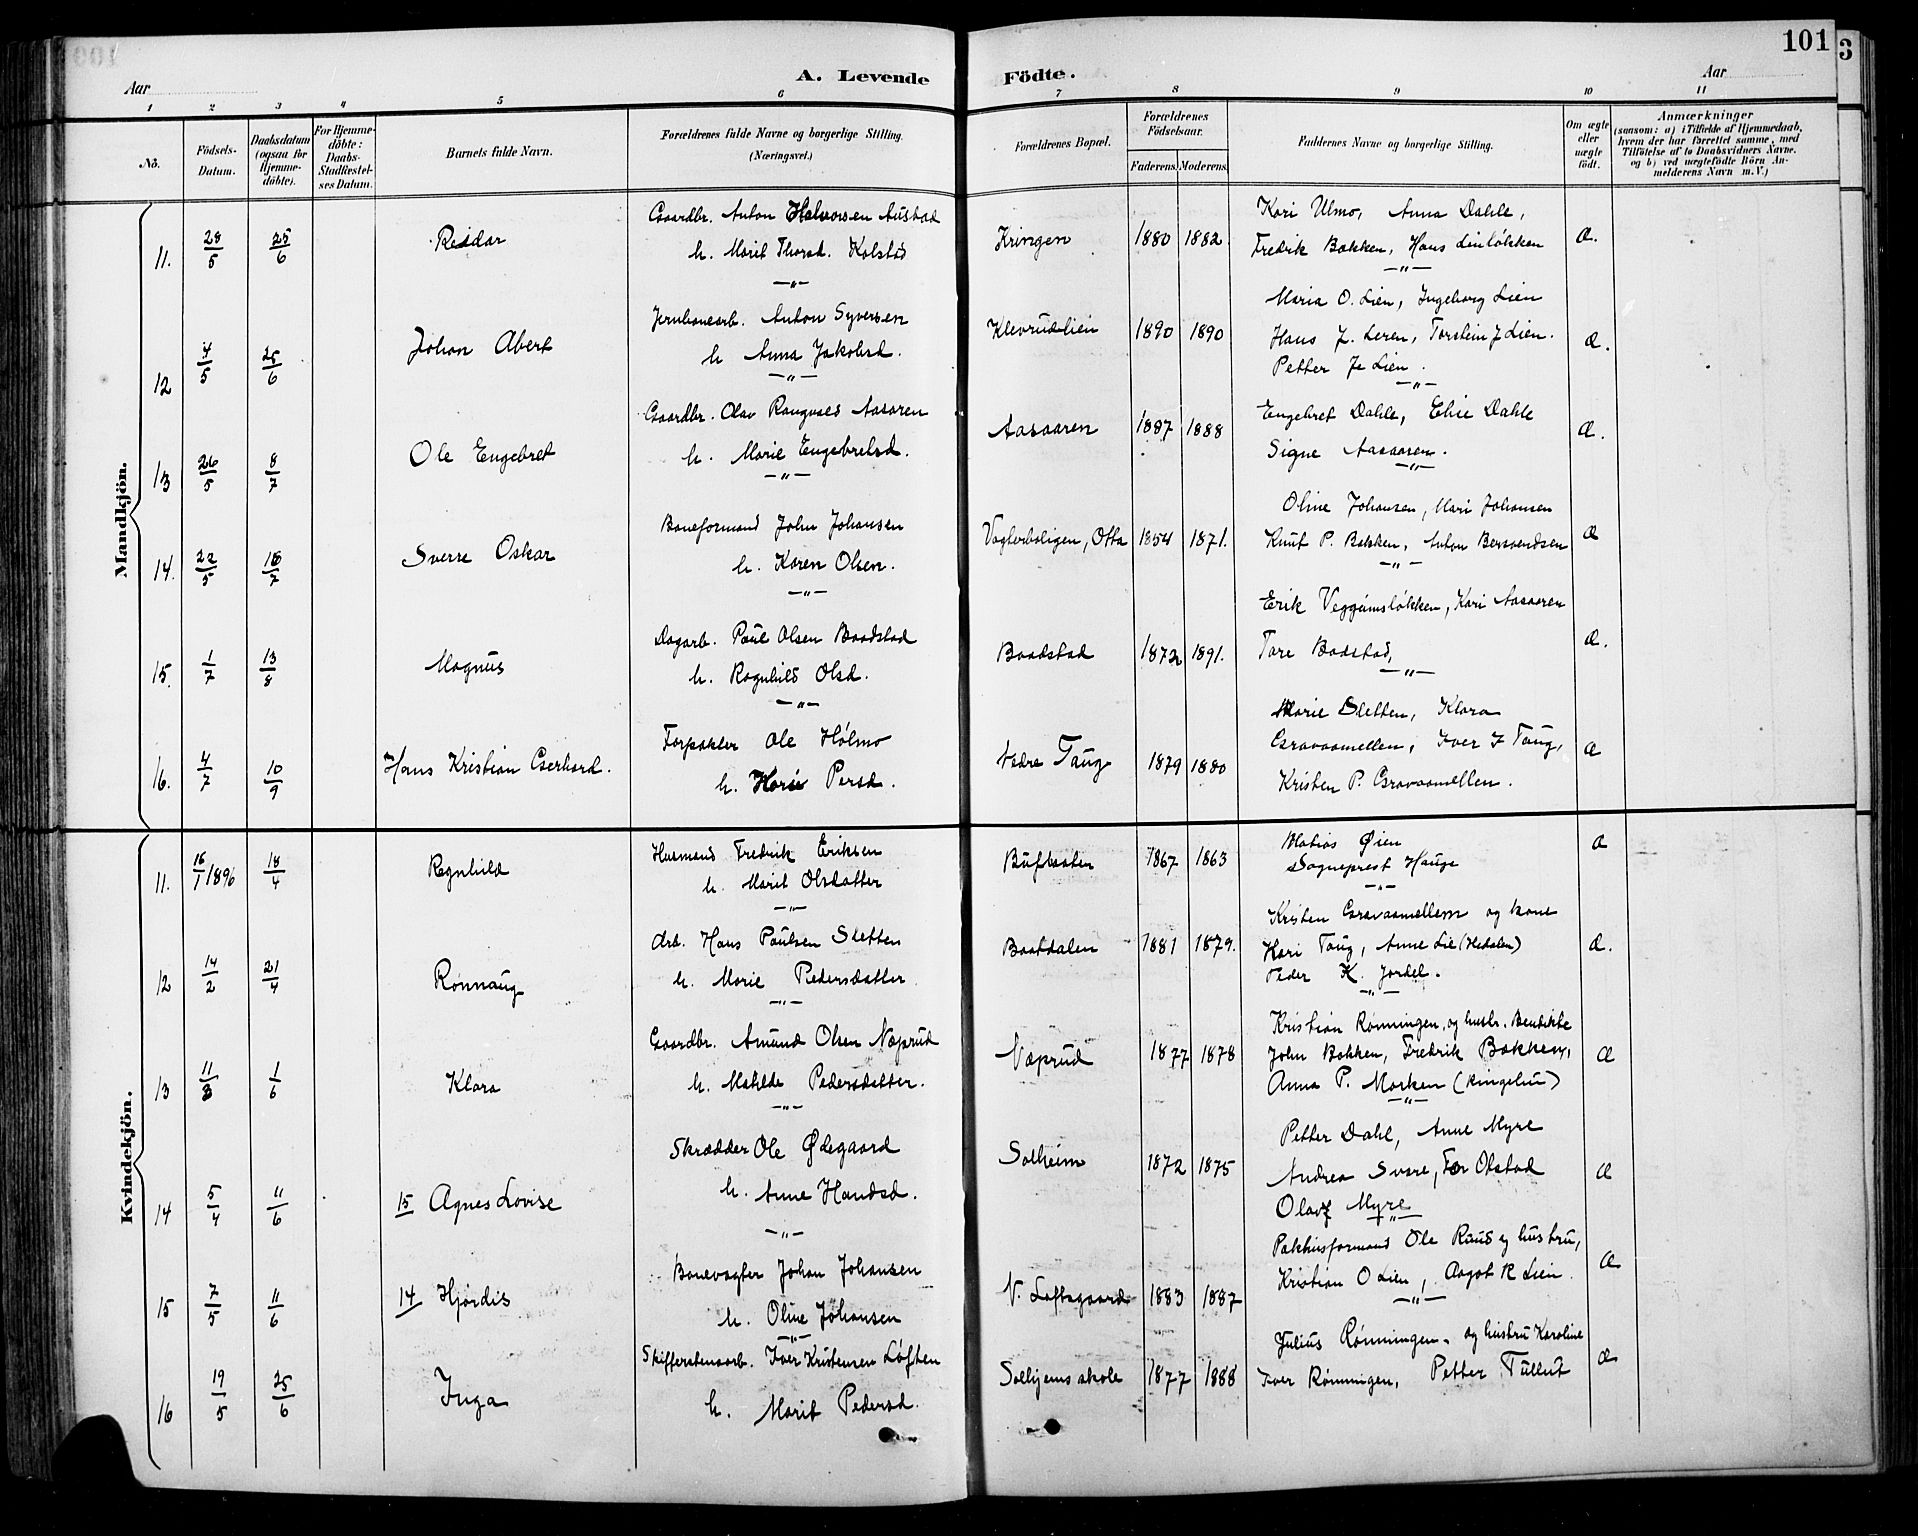 101
3
A. Levende Födte.
Aar
Aar
1 2 3 4 5 6 7 8 9 10 11
No.
Födsels-Datum.
Daabsdatum (ogsaa for Hjemme-döbte).
For Hjemme-döbte: Daabs-Stadfæstel-ses Datum.
Barnets fulde Navn.
Forældrenes fulde Navne og borgerlige Stilling. (Næringsvei.)
Forældrenes Bopæl.
Forældrenes Födselsaar.
Faderens. Moderens.
Faddernes Navne og borgerlige Stilling.
Om ægte eller uægte födt.
Anmærkninger
(saasom: a) i Tilfælde af Hjemmedaab, hvem der har forrettet samme, med Tilföielse af to Daabsvidners Navne, og b) ved uægtefödte Börn An-melderens Navn m. V.)
Mandkjön.
11. 28/5 25/6 Reidar
Gaardbr. Anton Halvorsen Austad
h. Marit Thorsd. Kolstad
Kringen 1880 1882.
Kari Ulmo, Anna Dahle,
Fredrik Bakken, Hans Linløkken
Æ.
12 4/5 25/6 Johan Abert
Jernbanearb. Anton Syversen
h. Anna Jakobsd.
Klevrudlien 1890 1890
Maria O. Lien, Ingeborg Lien
Hans J. Leren, Torstein J Lien.
Petter Lien.
Æ.
13 26/5 8/7 Ole Engebret
Gaardbr. Olav Rangvald Aasaaren
h. Marie Engebretsd.
Aasaaren 1887 1888
Engebret Dahle, Elise Dahle
Signe Aasaaren.
Æ.
14. 22/5 /7 Sverre Oskar
Baneformand John Johansen
h. Karen Olsen.
Vogterboligen, Otta 1854 1871.
Oline Johansen, Mari Johansen
Knut P. Bakken, Anton Bersvendsen
Æ
15. 1/7 13/8 Magnus
Dagarb. Paul Olsen Baadstad
h. Ragnhild Olsd.
Baadstad 1872 1891.
Erik Veggumsløkken, Kari Aasaaren
Tore Badstad,
Æ.
16. 4/7 10/9 Hans Kristian Gerhard.
Forpakter Ole Holmo
h. Persd.
Taug 1879 1880
Marie Sletten, Klara
Gravaamellen, Iver I Taug,
Kristen P. Graavaamellen.
Æ
Kvindekjön.
11. 16/1 1896 18/4 Ragnhild
Husmand Fredrik Eriksen
h. Marit Olsdatter
1867 1863
Matias Øien
Sogneprest Hauge
Æ
12 14/2 21/4 Rønnaug
Arb. Hans Paulsen Sletten
h. Marie Pedersdatter
Baatdalen 1881 1879.
Kristen Graavaamellem og kone
Kari Taug, Anne Lie (Hedalen)
Peder K. Jordet.
Æ.
13 11/3 1/6 Klara
Gaardbr. Amund Olsen Næprud
h. Mathilde Pedersdatter.
Næprud 1877 1878
Kristian Rønningen, og hustr. Bendikte
John Bakken, Fredrik Bakken,
Anna P. Morken (Ringebu)
Æ
14 5/4 11/6 15 Agnes Lovise
Skrædder Ole Ødegaard
h. Anne Hansd.
Solheim 1872 1875
Petter Dahl, Anne Myre
Andrea Svare, Tor Olstad
Olav Myre
Æ
15 7/5 11/6 14 Hjørdis
Banevogter Johan Johansen
h. Oline Johansen
N. Loftsgaard 1883 1887
Pakhusformand Ole Ruud og hustru,
Kristian O Lien, Aagot R Lien.
Æ
16 19/5 25/6 Inga
Skifferstensarb. Iver Kristensen Løften
h. Marit Pedersd.
Solhjems skole 1877 1888
Julius Rønningen, og hustru Karoline
Iver Rønningen, Petter Tullut
Æ